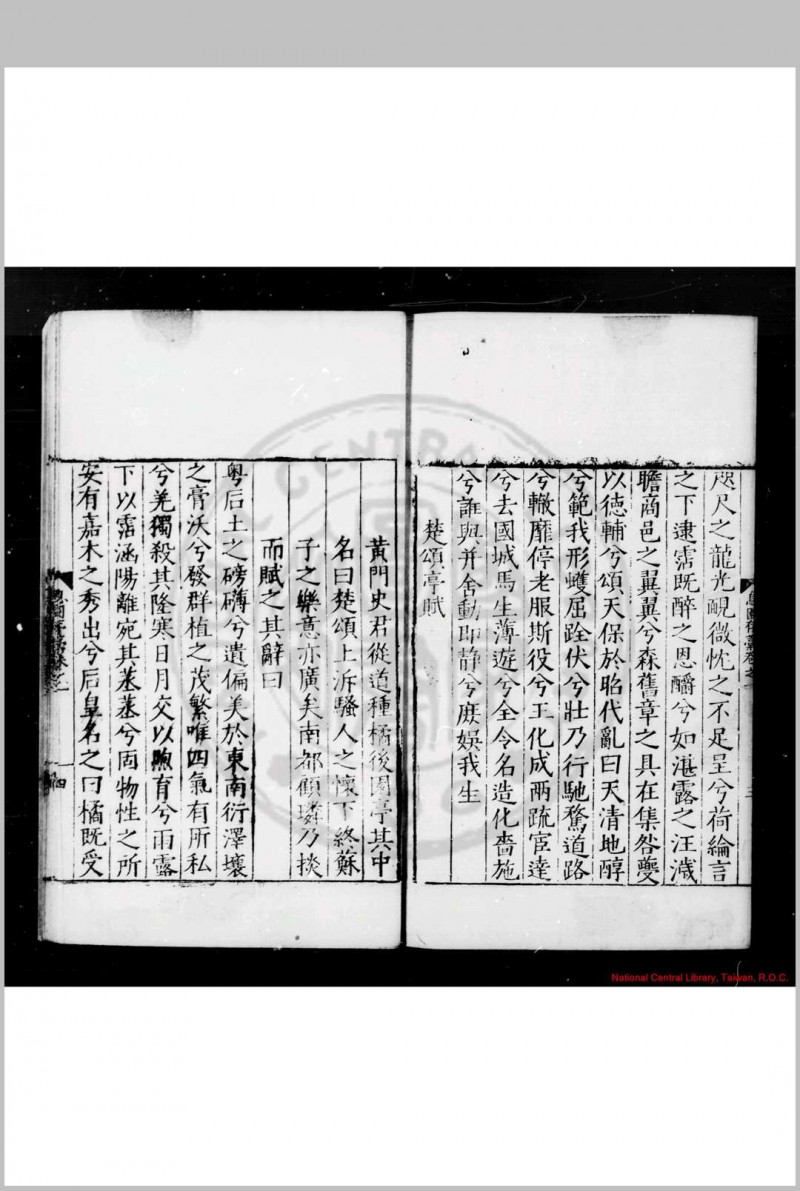 咫尺之龍光覶微忱之不足呈兮荷綸言
之下逮霈既醉之恩醻兮如湛露之汪濊
瞻商邑之翼翼兮森舊章之具在集咎夔
以德輔兮頌天保於昭代亂曰天清地醇
兮範我形蠖屈跧伏兮壯乃行馳騖道路
兮轍靡停老服斯役兮王化成兩疏宦達
兮去國城馬生薄遊兮全令名造化嗇施
兮誰與并舍動即静兮庶娱我生
楚頌亭賦
三
黃門史君從道種橘後園亭其中
名曰楚頌上泝騷人之懷下終蘇
子之樂意亦廣矣南都顧璘乃掞
而賦之其辭曰
粤后土之磅礴兮遺偏美於東南衍澤壤
之膏沃兮發群植之茂繁唯四氣有所私
兮羌獨殺其隆寒日月交以煦育兮雨露
下以霑涵陽離宛其萋萋兮固物性之所
安有嘉木之秀出兮后皇名之曰橘既受
息園存稿卷之一
四
National Central Library, Taiwan, R.O.C.